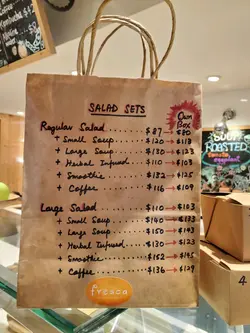 SALAD SETS
Own Box
Regular Salad .......... $87 → $80
+ Small Soup .......... $120 → $113
+ Large Soup .......... $130 → $123
+ Herbal Infused .......... $110 → $103
+ Smoothie .......... $132 → $125
+ Coffee .......... $116 → $109
Large Salad .......... $110 → $103
+ Small Soup .......... $140 → $133
+ Large Soup .......... $150 → $143
+ Herbal Infused .......... $130 → $123
+ Smoothie .......... $152 → $145
+ Coffee .......... $136 → $129
fresca
SOUP
ROASTED
4